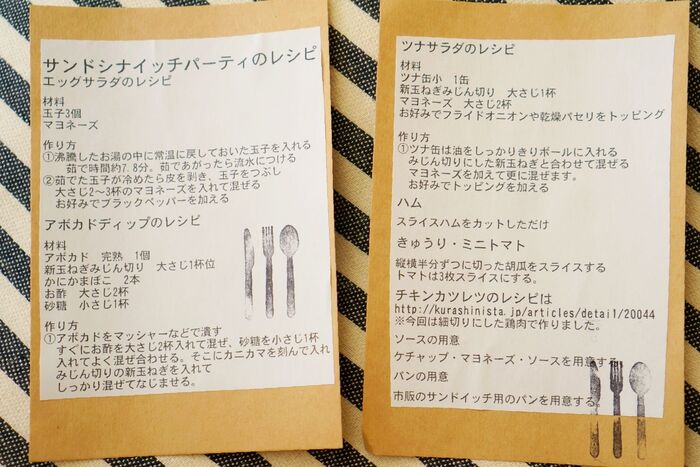 サンドシナイッチパーティのレシピ
エッグサラダのレシピ
材料
玉子3個
マヨネーズ
作り方
①沸騰したお湯の中に常温に戻しておいた玉子を入れる
茹で時間約7.8分。茹であがったら流水につける
②茹でた玉子が冷めたら皮を剥き、玉子をつぶし
大さじ2〜3杯のマヨネーズを入れて混ぜる
お好みでブラックペッパーを加える
アボカドディップのレシピ
材料
アボカド 完熟 1個
新玉ねぎみじん切り 大さじ1杯位
かにかまぼこ 2本
お酢 大さじ2杯
砂糖 小さじ1杯
作り方
①アボカドをマッシャーなどで潰す
すぐにお酢を大さじ2杯入れて混ぜ、砂糖を小さじ1杯
入れてよく混ぜ合わせる。そこにカニカマを刻んで入れ
みじん切りの新玉ねぎを入れて
しっかり混ぜてなじませる。
ツナサラダのレシピ
材料
ツナ缶小 1缶
新玉ねぎみじん切り 大さじ1杯
マヨネーズ 大さじ2杯
お好みでフライドオニオンや乾燥パセリをトッピング
作り方
①ツナ缶は油をしっかりきりボールに入れる
みじん切りにした新玉ねぎと合わせて混ぜる
マヨネーズを加えて更に混ぜます。
お好みでトッピングを加える
ハム
スライスハムをカットしただけ
きゅうり・ミニトマト
縦横半分ずつに切った胡瓜をスライスする
トマトは3枚スライスにする。
チキンカツレツのレシピは
http://kurashinista.jp/articles/detail/20044
※今回は細切りにした鶏肉で作りました。
ソースの用意
ケチャップ・マヨネーズ・ソースを用意する
パンの用意
市販のサンドイッチ用のパンを用意する。